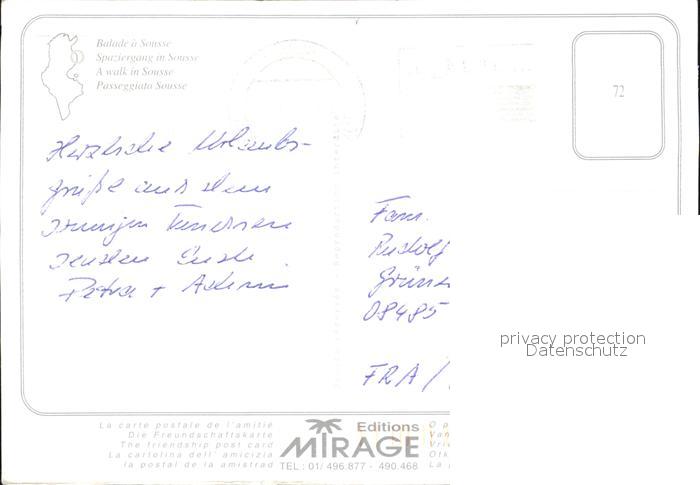 Balade à Sousse
Spaziergang in Sousse
A walk in Sousse
Passeggiata Sousse
72
Herzliche Urlaubs-
grüße aus dem
sonnigen Tunesien
senden Euch
Petra +
Fam.
Rudolf
08485
FRA /
privacy protection
Datenschutz
La carte postale de l'amitié
Die Freundschaftskarte
The friendship post card
La cartolina dell' amicizia
la postal de la amistrad
Editions
MIRAGE
TEL : 01/ 496.877 - 490.468